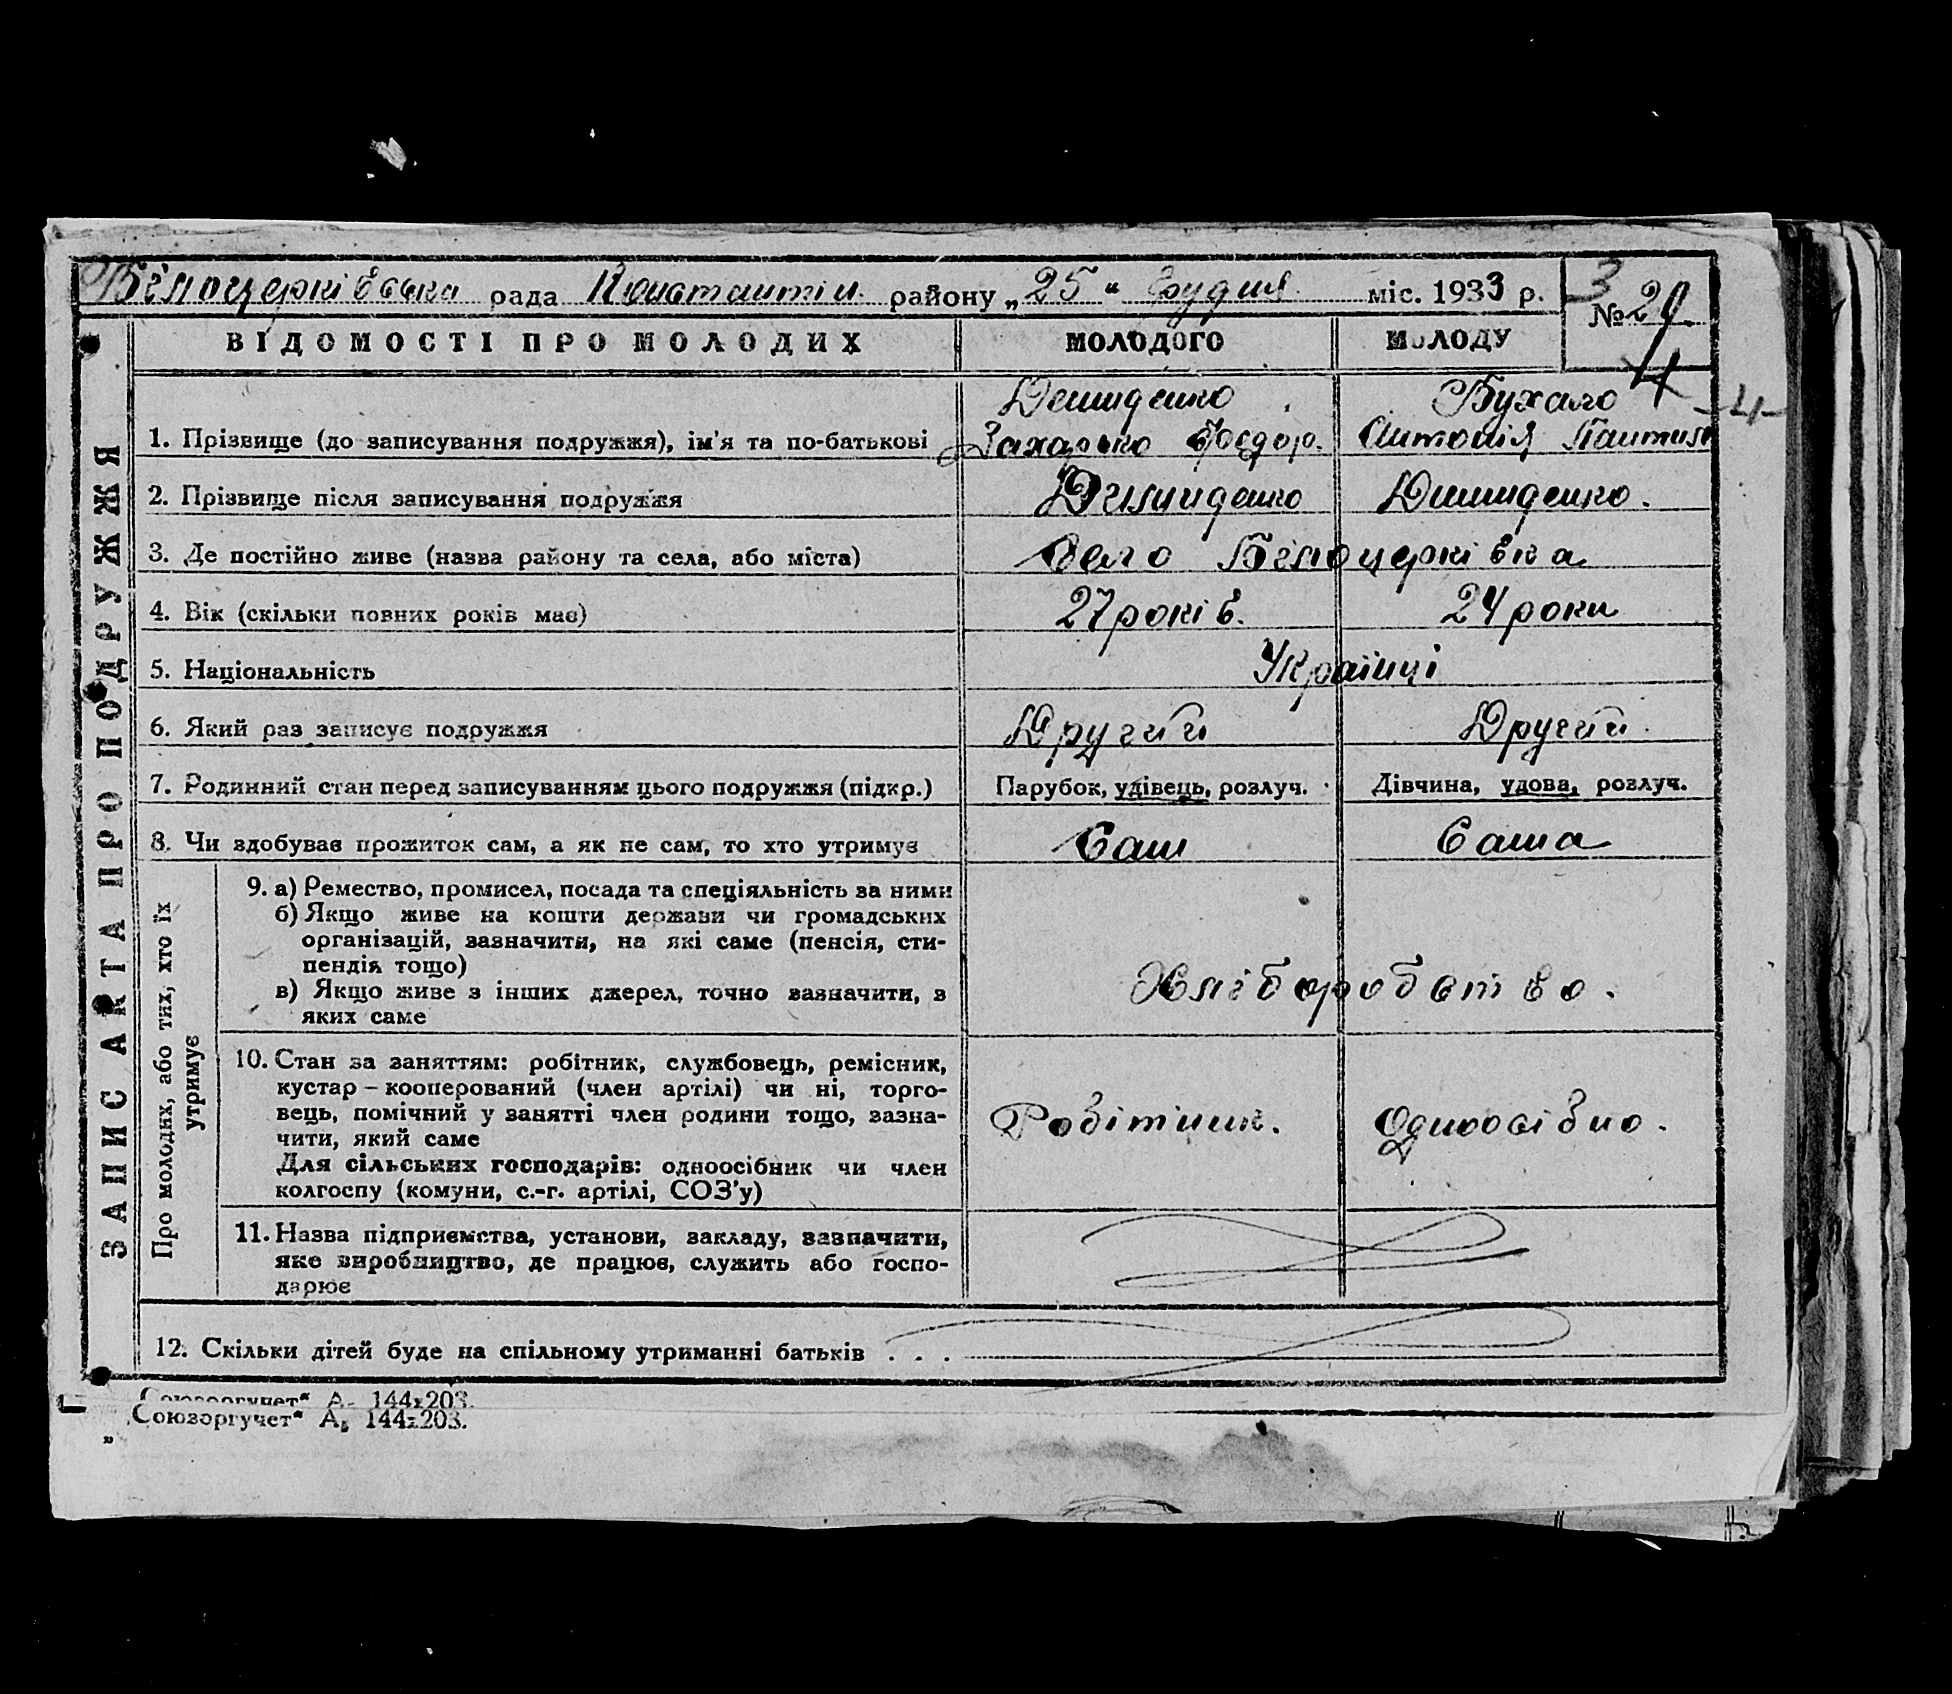 Білоцерківська рада Констянтін. району „25“ Грудня міс. 1933 р.
3
№ 29
ВІДОМОСТІ ПРО МОЛОДИХ МОЛОДОГО МОЛОДУ
ЗАПИС АКТА ПРО ПОДРУЖЖЯ
Демиденко Бухало
1. Прізвище (до записування подружжя), ім'я та по-батькові Захарько Федор. Антонія
2. Прізвище після записування подружжя Демиденко Демиденко.
3. Де постійно живе (назва району та села, або міста) Село Білоцерківка
4. Вік (скільки повних років має) 27 років. 24 роки
5. Національність Українці
6. Який раз записує подружжя Другий Другий.
7. Родинний стан перед записуванням цього подружжя (підкр.) Парубок, удівець, розлуч. Дівчина, удова, розлуч.
8. Чи здобував прожиток сам, а як не сам, то хто утримує Сам Сама
Про молодих, або тих, хто їх
утримує
9. а) Ремество, промисел, посада та спеціяльність за ними
б) Якщо живе на кошти держави чи громадських
організацій, зазначити, на які саме (пенсія, сти-
пендія тощо)
в) Якщо живе з інших джерел, точно зазначити, з
яких саме
Хліборобство.
10. Стан за заняттям: робітник, службовець, ремісник,
кустар – кооперований (член артілі) чи ні, торго-
вець, помічний у занятті член родини тощо, зазна-
чити, який саме
Для сільських господарів: одноосібник чи член
колгоспу (комуни, с.-г. артілі, СОЗ'у)
Робітник. Одноосібно.
11. Назва підприємства, установи, закладу, зазначити,
яке виробництво, де працює, служить або госпо-
дарює
12. Скільки дітей буде на спільному утриманні батьків . . .
Союзоргучет“ А₅ 144x203.
„Союзоргучет“ А₅ 144x203.